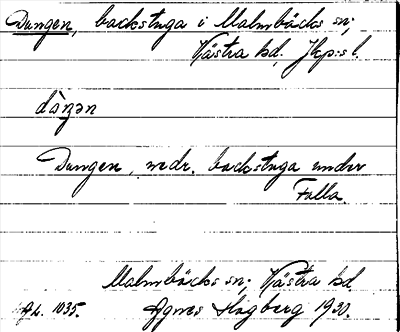 Dungen, backstuga i Malmbäcks sn;
Västra hd, Jkp:s l.
dàŋən
Dungen, nedr. backstuga under
Falla.
Malmbäcks sn; Västra hd.
Agnes Högberg 1930.
1035.